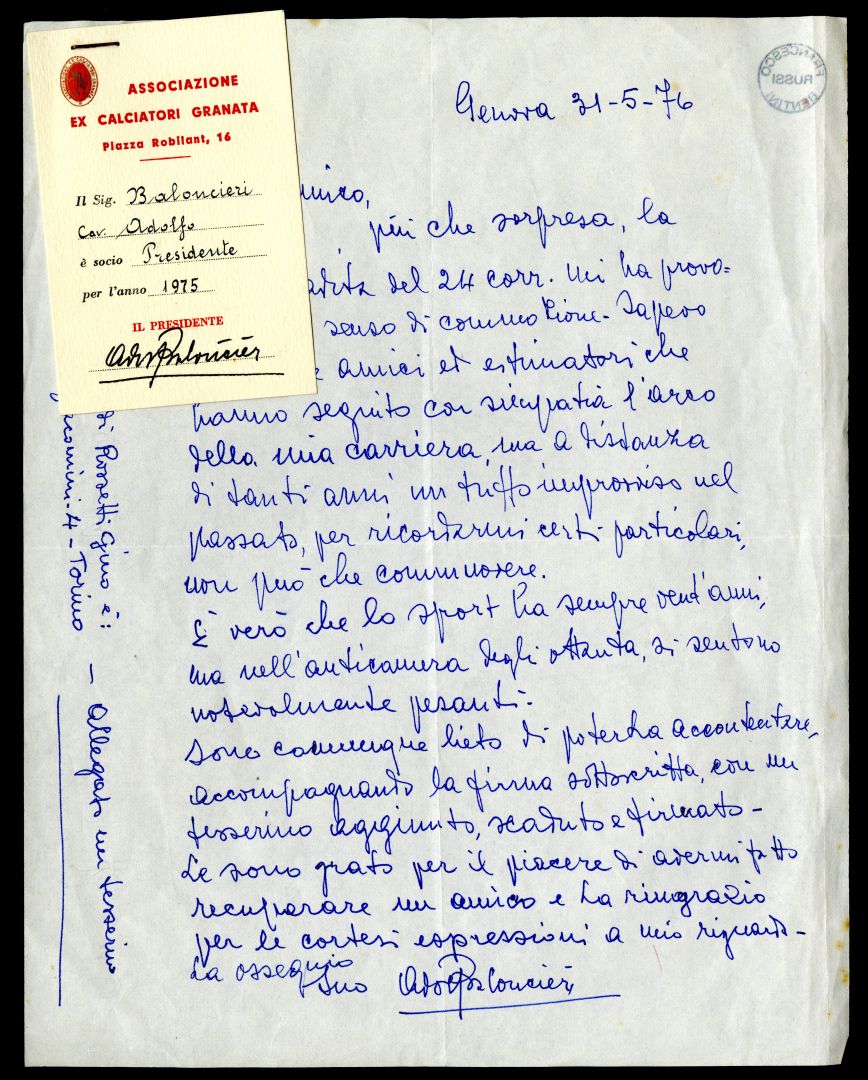 ASSOCIAZIONE
EX CALCIATORI GRANATA
Piazza Robilant, 16
Il Sig. Baloncieri
Cav. Adolfo
è socio Presidente
per l'anno 1975
IL PRESIDENTE
Adolfo Baloncieri
FRANCESCO
RUSSI
BENTINI
Genova 31-5-76
più che sorpresa, la
del 24 corr. mi ha provo=
senso di commozione - Sapevo
amici ed estimatori che
hanno seguito con simpatia l'arco
della mia carriera, ma a distanza
di tanti anni un tuffo improvviso nel
passato, per ricordarmi certi particolari,
non può che commuovere.
È verò che lo sport ha sempre vent'anni,
ma nell'anticamera degli ottanta, si sentono
notevolmente pesanti.
Sono comunque lieto di poterLa accontentare,
accompagnando la firma sottoscritta, con un
tesserino aggiunto, scaduto e firmato -
Le sono grato per il piacere di avermi fatto
recuperare un amico e La ringrazio
per le cortesi espressioni a mio riguardo -
La ossequio
Suo Adolfo Baloncieri
di Rossetti Gino è:
- 4 - Torino
— Allegato un tesserino